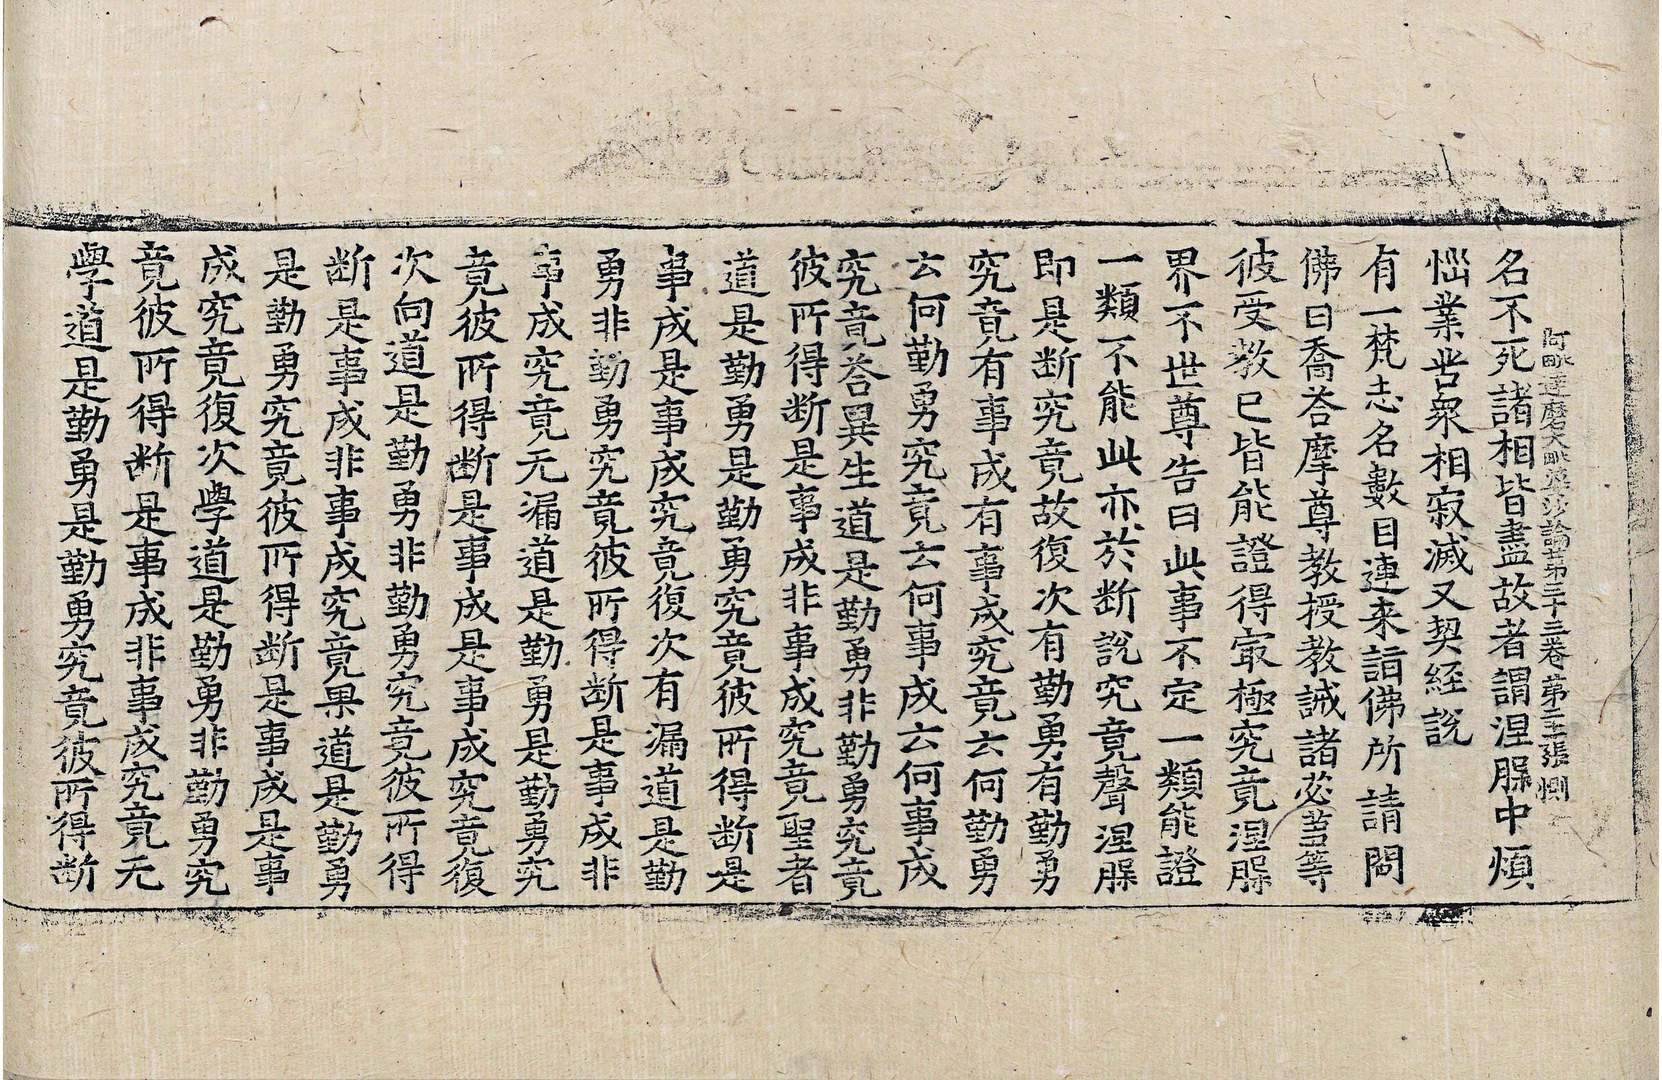 阿毗達磨大毗婆沙論第三十三卷 第二十張 惻
名不死諸相皆盡故者謂涅脲中煩
惱業苦衆相寂滅又契經說
有一梵志名數目連来詣佛所請問
佛曰喬荅摩尊教授教誡諸苾蒭等
彼受教已皆能證得㝡極究竟涅脲
界不世尊告曰此事不定一類能證
一類不能此亦於断說究竟聲涅脲
即是断究竟故復次有勤勇有勤勇
究竟有事成有事成究竟云何勤勇
云何勤勇究竟云何事成云何事成
究竟荅異生道是勤勇非勤勇究竟
彼所得断是事成非事成究竟聖者
道是勤勇是勤勇究竟彼所得断是
事成是事成究竟復次有漏道是勤
勇非勤勇究竟彼所得断是事成非
事成究竟无漏道是勤勇是勤勇究
竟彼所得断是事成是事成究竟復
次向道是勤勇非勤勇究竟彼所得
断是事成非事成究竟果道是勤勇
是勤勇究竟彼所得断是事成是事
成究竟復次學道是勤勇非勤勇究
竟彼所得断是事成非事成究竟无
學道是勤勇是勤勇究竟彼所得断